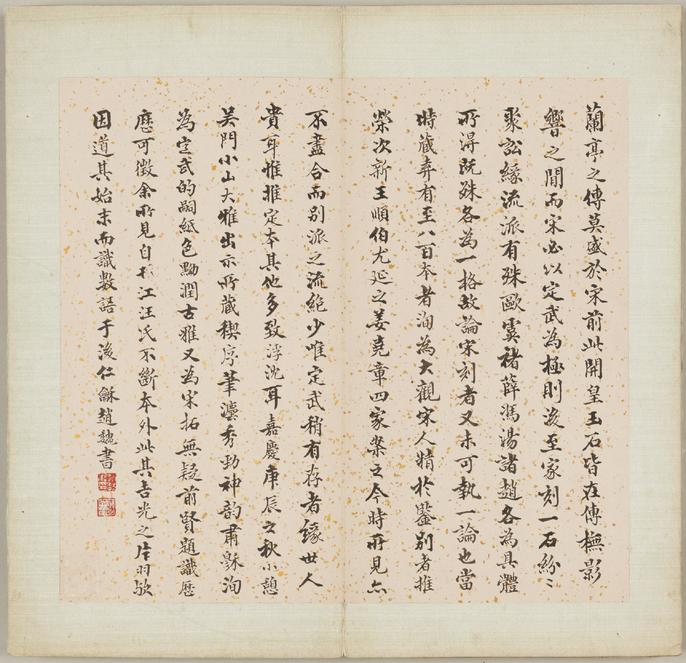 蘭亭之傳莫盛於宋前此開皇玉石皆在傳橅影
響之間而宋必以定武為極則後至家刻一石紛〻
聚訟緣流派有殊歐虞褚薛馮湯諸趙各為具體
所得既殊各為一格故論宋刻者又未可執一論也當
時藏弆有至八百本者洵為大觀宋人精於鑒別者推
榮次新王順伯尤延之姜堯章四家案之今時所見亦
不盡合而別派之流絕少唯定武稍有存者緣世人
貴耳惟推定本其他多致浮沈耳嘉慶庚辰之秋小憩
吳門小山大雅出示所藏稧序筆瀍秀勁神韵肅穌洵
為定武的嗣紙色黝潤古雅又為宋拓無疑前賢題識歷
歷可徵余所見自松江汪氏不斷本外此其吉光之片羽歟
因道其始末而識數語于後仁龢趙魏書